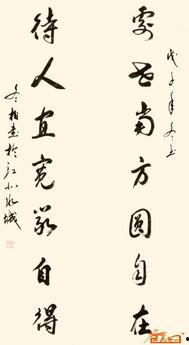 戊子年冬至
處世當方圓自在
待人宜寬嚴自得
冬柏書於江北水城